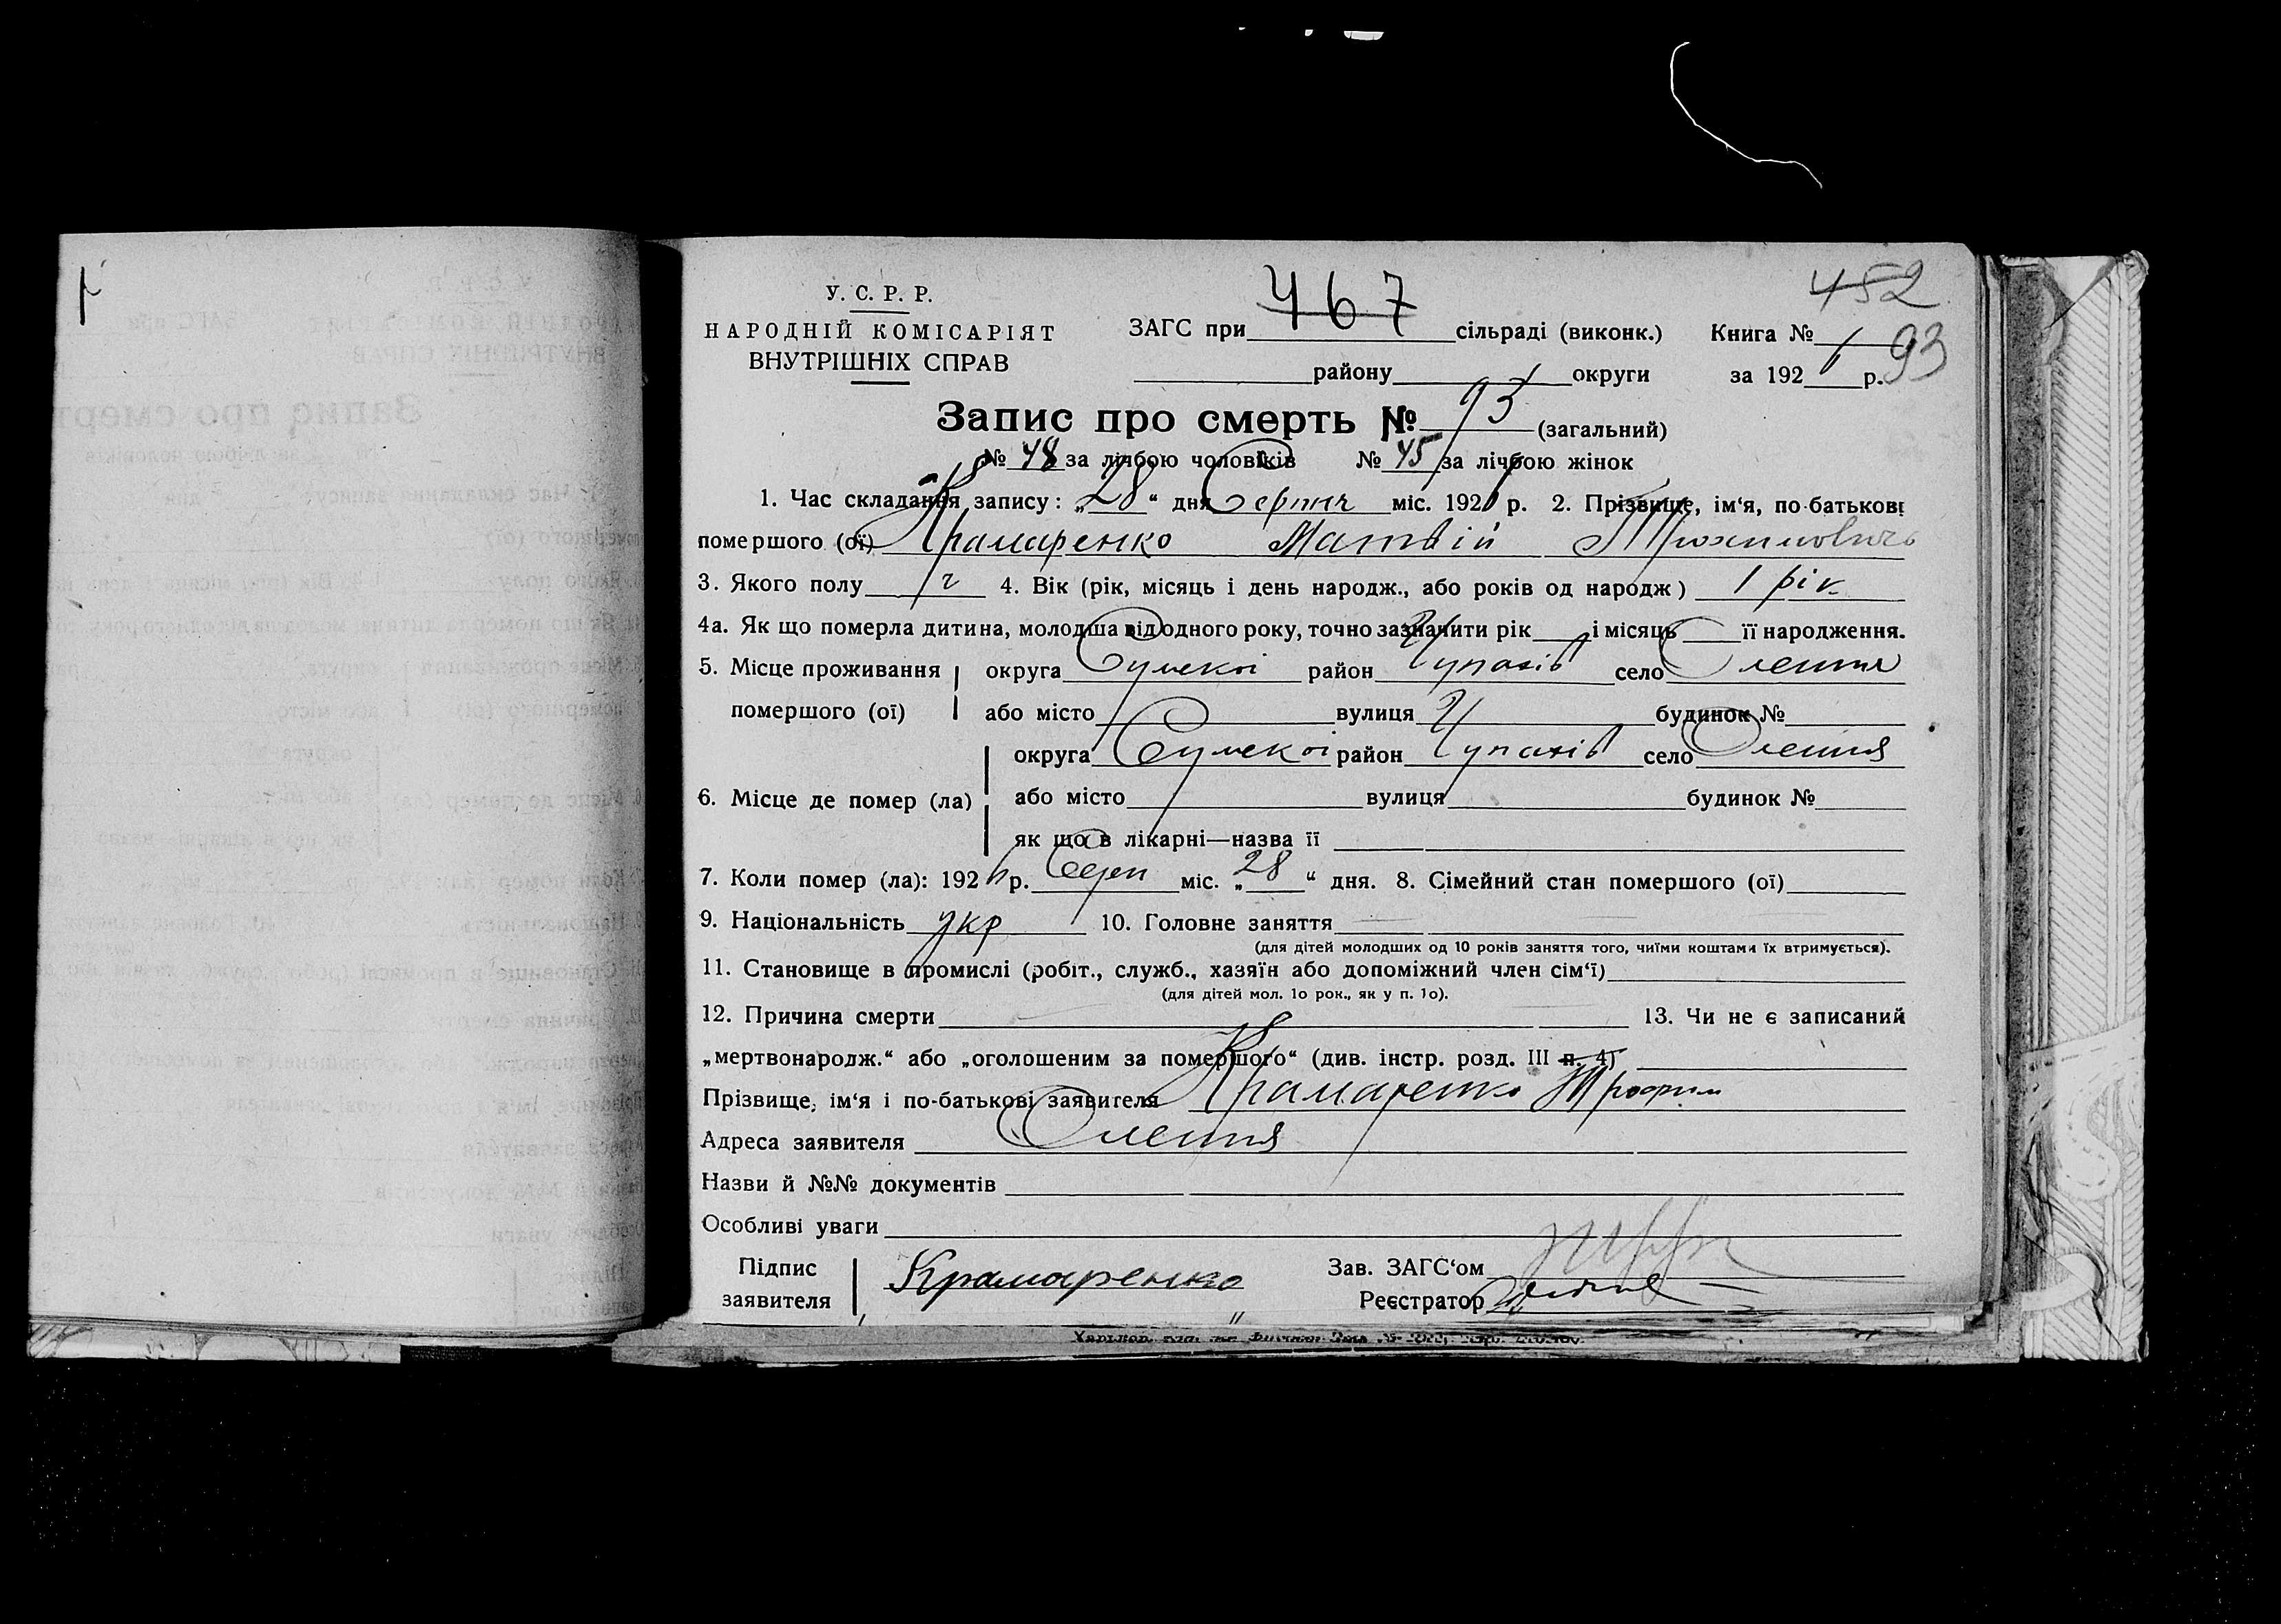 452
У. С. Р. Р.
НАРОДНІЙ КОМІСАРІЯТ
ВНУТРІШНІХ СПРАВ
ЗАГС при 467 сільраді (виконк.) Книга №
району округи за 192 р. 93
Запис про смерть № 93 (загальний)
№ 48 за лічбою чоловіків № 45 за лічбою жінок
1. Час складання запису: „28“ дня Серпня міс. 192 р. 2. Прізвище, ім‘я, по-батькові
помершого (ої) Крамаренко Матвій
3. Якого полу ч 4. Вік (рік, місяць і день народж., або років од народж) 1 рік
4а. Як що померла дитина, молодша від одного року, точно зазначити рік і місяць її народження.
5. Місце проживання округа Сумскоі район Чупахів село Олешня
помершого (ої) або місто вулиця будинок №
округа Сумскоі район Чупахів село Олешня
6. Місце де помер (ла) або місто вулиця будинок №
як що в лікарні—назва її
7. Коли помер (ла): 192 р. Серп міс. „28“ дня. 8. Сімейний стан помершого (ої)
9. Національність укр 10. Головне заняття
(для дітей молодших од 10 років заняття того, чиїми коштами їх втримується).
11. Становище в промислі (робіт., служб., хазяїн або допоміжний член сім‘ї)
(для дітей мол. 1о рок., як у п. 1о).
12. Причина смерти 13. Чи не є записаний
„мертвонародж.“ або „оголошеним за помершого“ (див. інстр. розд. III п. 4)
Прізвище, ім‘я і по-батькові заявителя Крамаренко Трофим
Адреса заявителя Олешня
Назви й №№ документів
Особливі уваги
Підпис заявителя Крамаренко
Зав. ЗАГС‘ом
Реєстратор